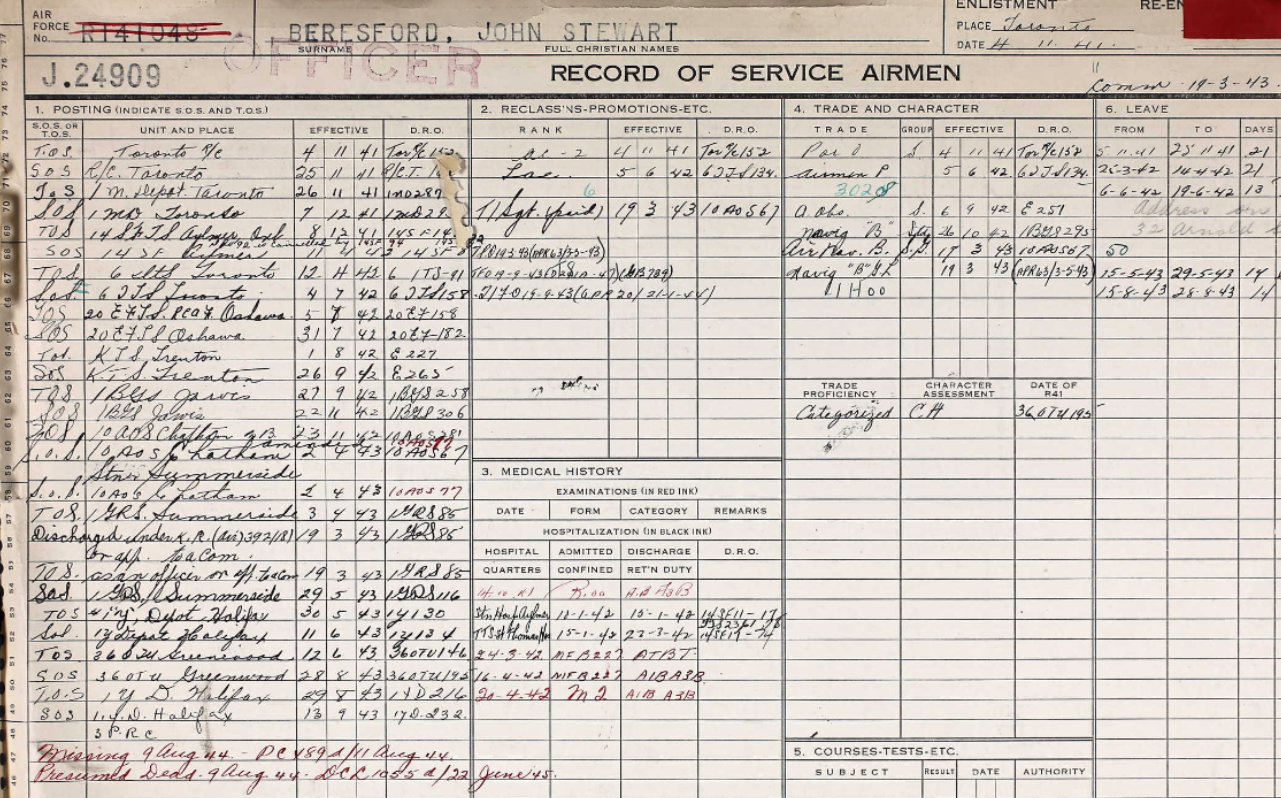 AIR FORCE No. R141048
BERESFORD, JOHN STEWART
SURNAME FULL CHRISTIAN NAMES
ENLISTMENT RE-EN
PLACE Toronto
DATE 4 11 41.
OFFICER
J.24909
RECORD OF SERVICE AIRMEN
Comm - 19-3-43.
1. POSTING (INDICATE S.O.S. AND T.O.S.)
S.O.S. OR T.O.S. UNIT AND PLACE EFFECTIVE D.R.O.
T.O.S. Toronto R/C 4 11 41
S O S R/C. Toronto 25 11 41
T.O.S 1 M. Depot. Toronto 26 11 41 1MD287
SOS 1 MD Toronto 7 12 41 1MD29
TOS 14 SFTS Aylmer 8 12 41
SOS 14 SF Aylmer
TOS 6 ITS Toronto 12 4 42 6 ITS-91
SOS 6 ITS Toronto 4 7 42 6 ITS158
TOS 20 EFTS. RCAF. Oshawa 5 7 42 20 EF158
SOS 20 EFTS Oshawa 31 7 42 20EF-182.
TOS. KTS. Trenton 1 8 42 E 227
SOS K.T.S. Trenton 26 9 42 E265
TOS 1 BGS Jarvis 27 9 42 1BGS258
SOS 1BGS Jarvis 22 11 42 1BGS 306
TOS 10 AOS Chatham N.B. 23 11 42
S.O.S. 10 AOS Chatham 2 4 43 10 AOS67
amended 10AOS77
Summerside
S.O.S. 10 AOS Chatham 2 4 43 10AOS 77
TOS 1 GRS. Summerside 3 4 43 1GRS85
Discharged under K.R. (Air) 392(18) 19 3 43 1GRS85
on app. to a Com.
T.O.S. as an officer on app. to a Com 19 3 43 1GRS 85
SOS. 1 GRS, Summerside 29 5 43 1GRS116
TOS "Y" Depot Halifax 30 5 43 1Y130
SOS 1Y Depot Halifax 11 6 43 1Y134
TOS 36OTU Greenwood 12 6 43 36OTU146
SOS 36OTU Greenwood 28 8 43 36OTU195
T.O.S 1 Y D. Halifax 29 8 43 1YD216
SOS 1.Y.D. Halifax 13 9 43 1YD.232.
3 P.R.C
Missing 9 Aug 44 - PC 489d/11 Aug 44.
Presumed Dead - 9 Aug 44 - DCL 1055d/22 June 45.
2. RECLASS'NS-PROMOTIONS-ETC.
RANK EFFECTIVE D.R.O.
AC-2 4 11 41 Tor R/C 152
Lac. 5 6 42 6 ITS134.
T/Sgt. (paid) 19 3 43 10 AOS67
3. MEDICAL HISTORY
EXAMINATIONS (IN RED INK)
DATE FORM CATEGORY REMARKS
HOSPITALIZATION (IN BLACK INK)
HOSPITAL ADMITTED DISCHARGE D.R.O.
QUARTERS CONFINED RET'N DUTY
15-1-42 23-3-42
24-3-42 MFB227
16-4-42 MFB227 A1B A3B
20-4-42 M2 A1B A3B
4. TRADE AND CHARACTER
TRADE GROUP EFFECTIVE D.R.O.
P or O S 4 11 41 Tor R/C 152
Airmen P 5 6 42 6 ITS134.
A. Obs. S. 6 9 42 E 251
Navig "B" 26 10 42 1BGS295
Air Nav. B. 17 3 43 10AOS67
Navig "B" 19 3 43 (APR63/3-5-43)
TRADE PROFICIENCY CHARACTER ASSESSMENT DATE OF R41
Categorized 36OTU195
5. COURSES-TESTS-ETC.
SUBJECT RESULT DATE AUTHORITY
6. LEAVE
FROM TO DAYS
5-11-41 25 11 41 21
25-3-42 14-4-42 21
6-6-42 19-6-42 13
Address on
32 Arnold
50
15-5-43 29-5-43 14
15-8-43 28-8-43 14